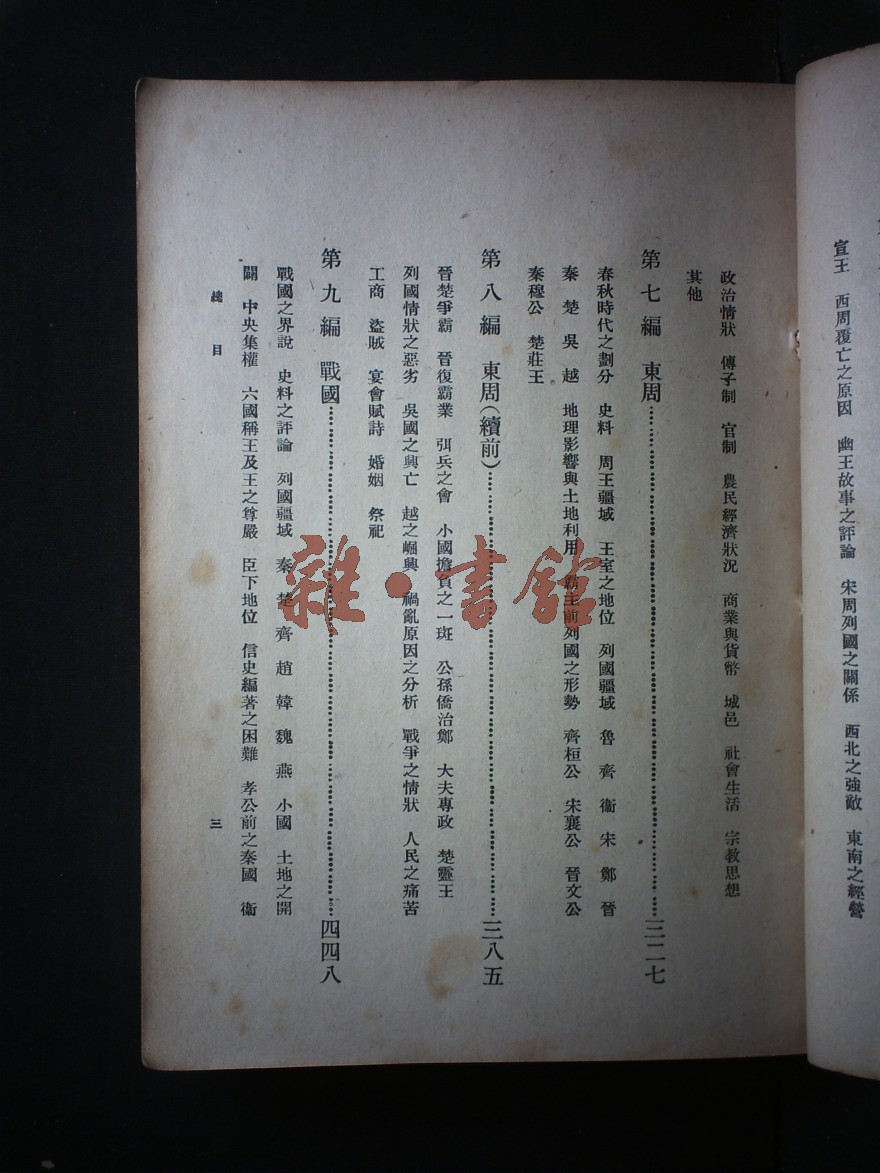 宣王　西周覆亡之原因　幽王故事之評論　宋周列國之關係　西北之強敵　東南之經營
政治情狀　傳子制　官制　農民經濟狀況　商業與貨幣　城邑　社會生活　宗教思想
其他
第七編　東周……三二七
春秋時代之劃分　史料　周王疆域　王室之地位　列國疆域　魯　齊　衞　宋　鄭　晉
秦　楚　吳　越　地理影響與土地利用　霸主前列國之形勢　齊桓公　宋襄公　晉文公
秦穆公　楚莊王
第八編　東周（續前）……三八五
晉楚爭霸　晉復霸業　弭兵之會　小國擔負之一斑　公孫僑治鄭　大夫專政　楚靈王
列國情狀之惡劣　吳國之興亡　越之崛興　禍亂原因之分析　戰爭之情狀　人民之痛苦
工商　盜賊　宴會賦詩　婚姻　祭祀
第九編　戰國……四四八
戰國之界說　史料之評論　列國疆域　秦　楚　齊　趙　韓　魏　燕　小國　土地之開
闢　中央集權　六國稱王及王之尊嚴　臣下地位　信史編著之困難　孝公前之秦國　衞
總目　三
雜·書館